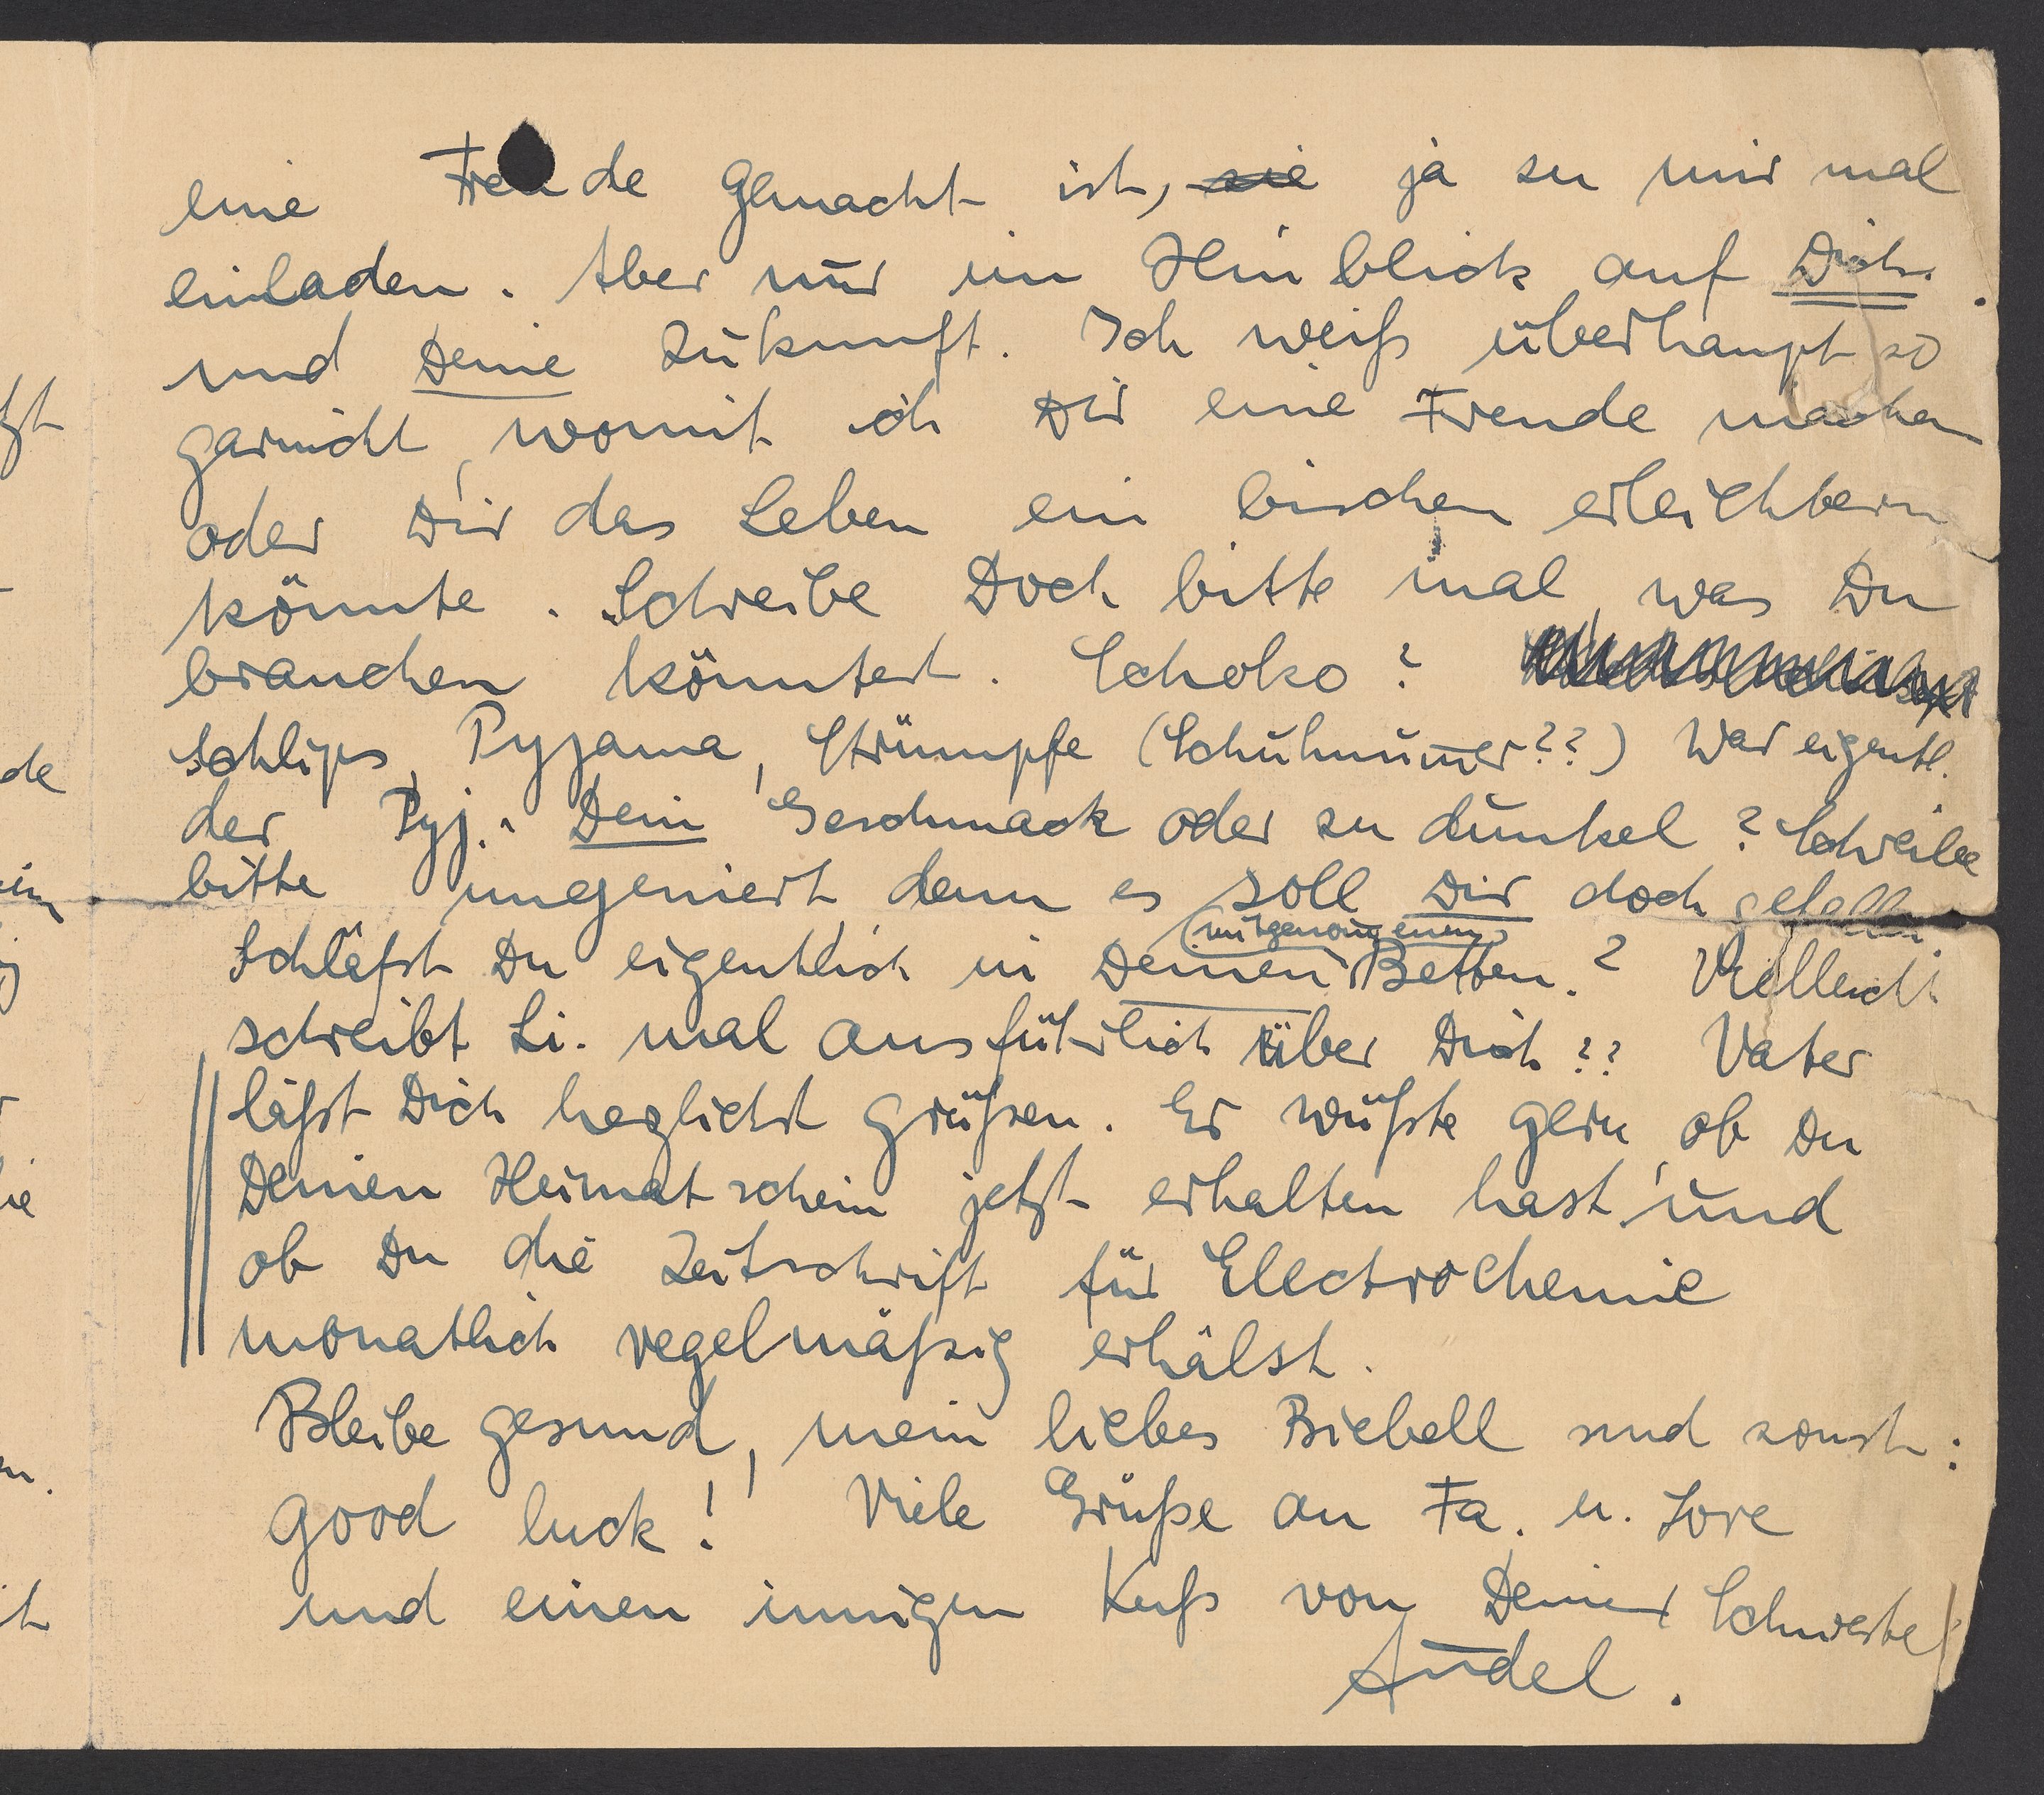 eine Freude gemacht ist, sie ja zu mir mal
einladen. Aber nur im Hinblick auf Dich.
und Deine Zukunft. Ich weiß überhaupt so
garnicht, womit ich Dir eine Freude machen
oder Dir das Leben ein bischen erleichtern
könnte. Schreibe Doch bitte mal, was Du
brauchen könntest. Schoko?
Schlips, Pyjama, Strümpfe (Schuhnum̅er??) War eigentl.
der Pyj. Dein Geschmack oder zu dunkel? Schreibe
bitte ungeniert denn es soll Dir doch gefallen.
(mitgenom̅enen)
Schläfst Du eigentlich in Deinen Betten? Vielleicht
schreibt Li. mal ausführlich über Dich?? Vater
läßt Dich herzlichst grüßen. Er wüßte gern, ob Du
Deinen Heimatschein jetzt erhalten hast und
ob Du die Zeitschrift für Electrochemie
monatlich regelmäßig erhälst.
Bleibe gesund, mein liebes Biebell und sonst:
good luck! Viele Grüße an Fa. u. Lore
und einen innigen Kuß von Deiner Schwester